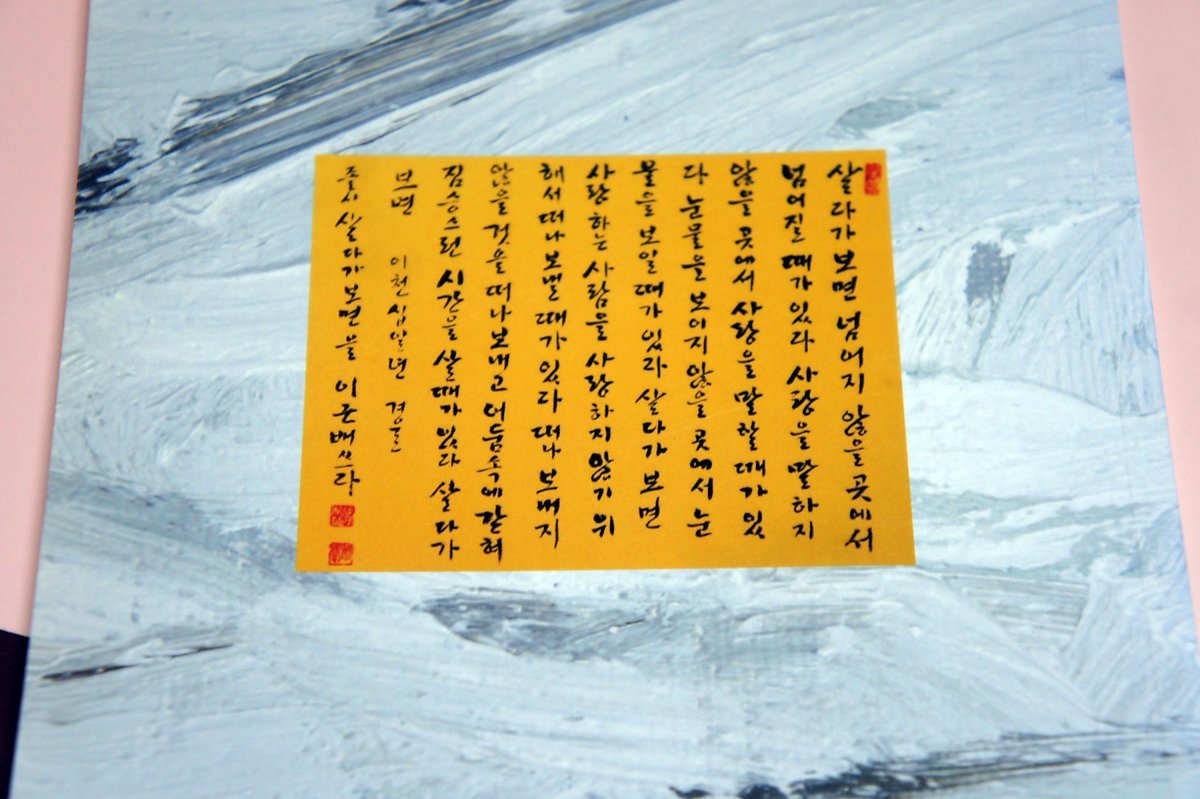 살다가 보면 넘어지 않을 곳에서
넘어질 때가 있다 사랑을 말하지
않을 곳에서 사랑을 말할 때가 있
다 눈물을 보이지 않을 곳에서 눈
물을 보일 때가 있다 살다가 보면
사랑하는 사람을 사랑하지 않기 위
해서 떠나보낼 때가 있다 떠나보내지
않을 것을 떠나보내고 어둠속에 갇혀
짐승스런 시간을 살때가 있다 살다가
보면 이천십일년
졸시 살다가 보면을 이근배 쓰다